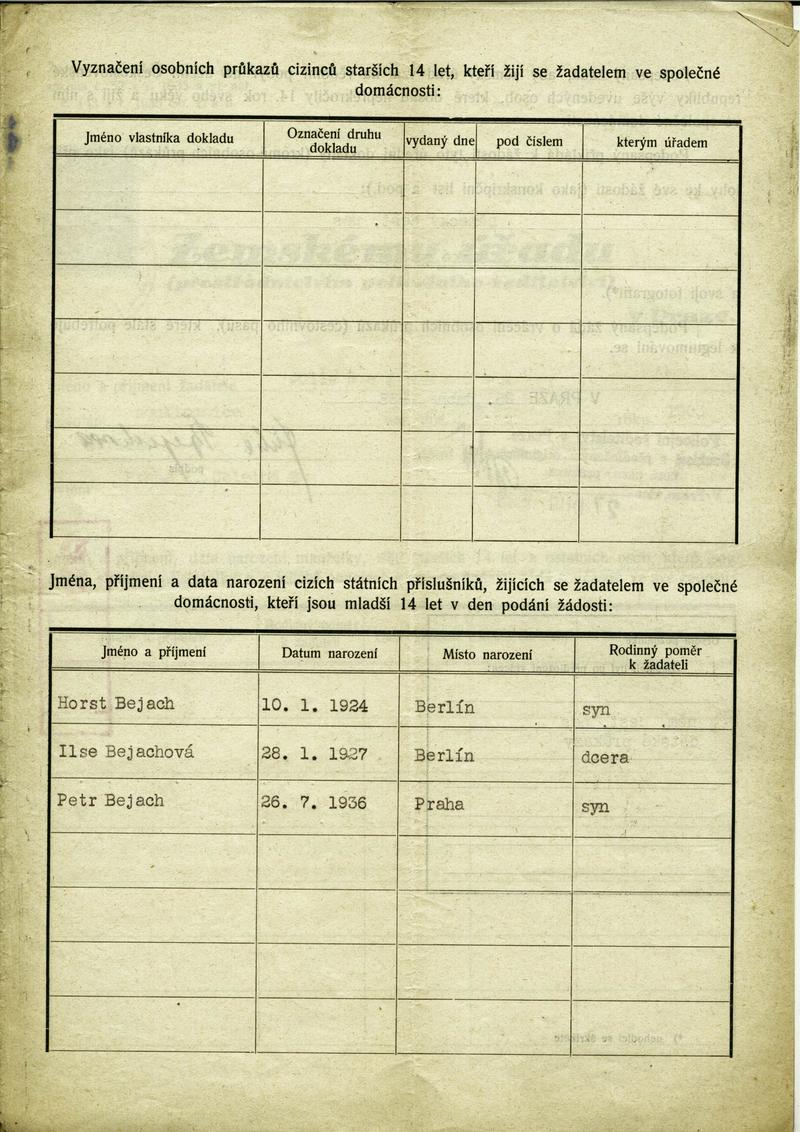 Vyznačení osobních průkazů cizinců starších 14 let, kteří žijí se žadatelem ve společné
domácnosti:
Jméno vlastníka dokladu | Označení druhu dokladu | vydaný dne | pod číslem | kterým úřadem
Jména, příjmení a data narození cizích státních příslušníků, žijících se žadatelem ve společné
domácnosti, kteří jsou mladší 14 let v den podání žádosti:
Jméno a příjmení | Datum narození | Místo narození | Rodinný poměr k žadateli
Horst Bejach | 10. 1. 1924 | Berlín | syn
Ilse Bejachová | 28. 1. 1927 | Berlín | dcera
Petr Bejach | 26. 7. 1936 | Praha | syn